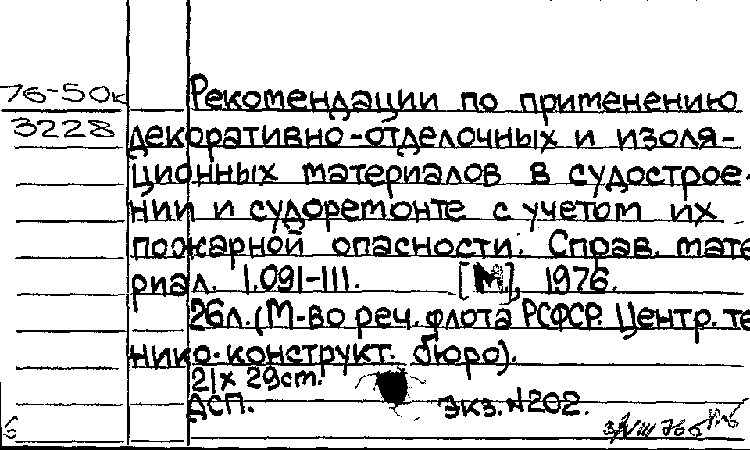 76-50к
3228
Рекомендации по применению
декоративно-отделочных и изоля-
ционных материалов в судострое-
нии и судоремонте с учетом их
пожарной опасности. Справ. мате
риал. 1.091-111. [М], 1976.
26л.(М-во реч. флота РСФСР. Центр. те
нико-конструкт. бюро).
21х 29cm.
ДСП. Экз. №202.